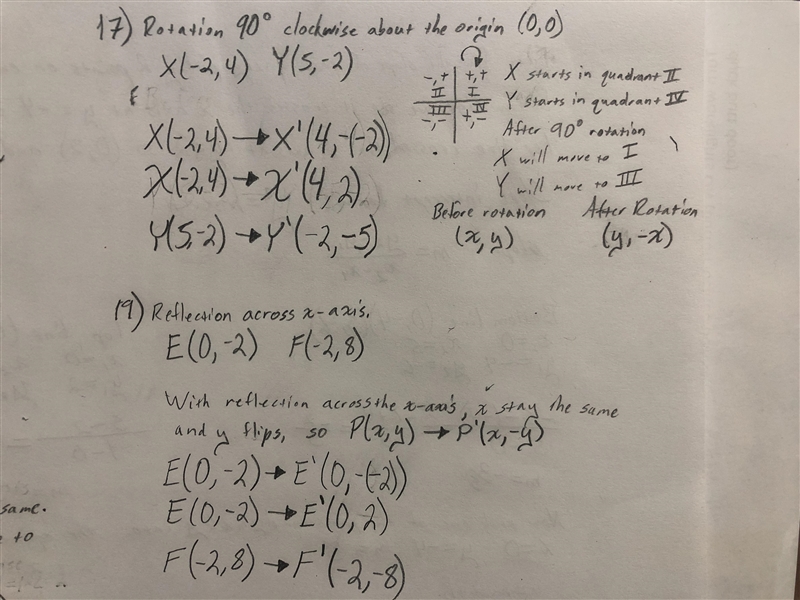 17) Rotation 90° clockwise about the origin (0,0)
X(-2,4) Y(5,-2)
X(-2,4) → X'(4,-(-2))
X(-2,4) → X'(4,2)
Y(5,-2) → Y'(-2,-5)
-,+ +,+
II I
III IV
-,- +,-
X starts in quadrant II
Y starts in quadrant IV
After 90° rotation
X will move to I
Y will move to III
Before rotation After Rotation
(x,y) (y,-x)
19) Reflection across x-axis.
E(0,-2) F(-2,8)
With reflection across the x-axis, x stay the same
and y flips, so P(x,y) → P'(x,-y)
E(0,-2) → E'(0,-(-2))
E(0,-2) → E'(0,2)
F(-2,8) → F'(-2,-8)
same.
to